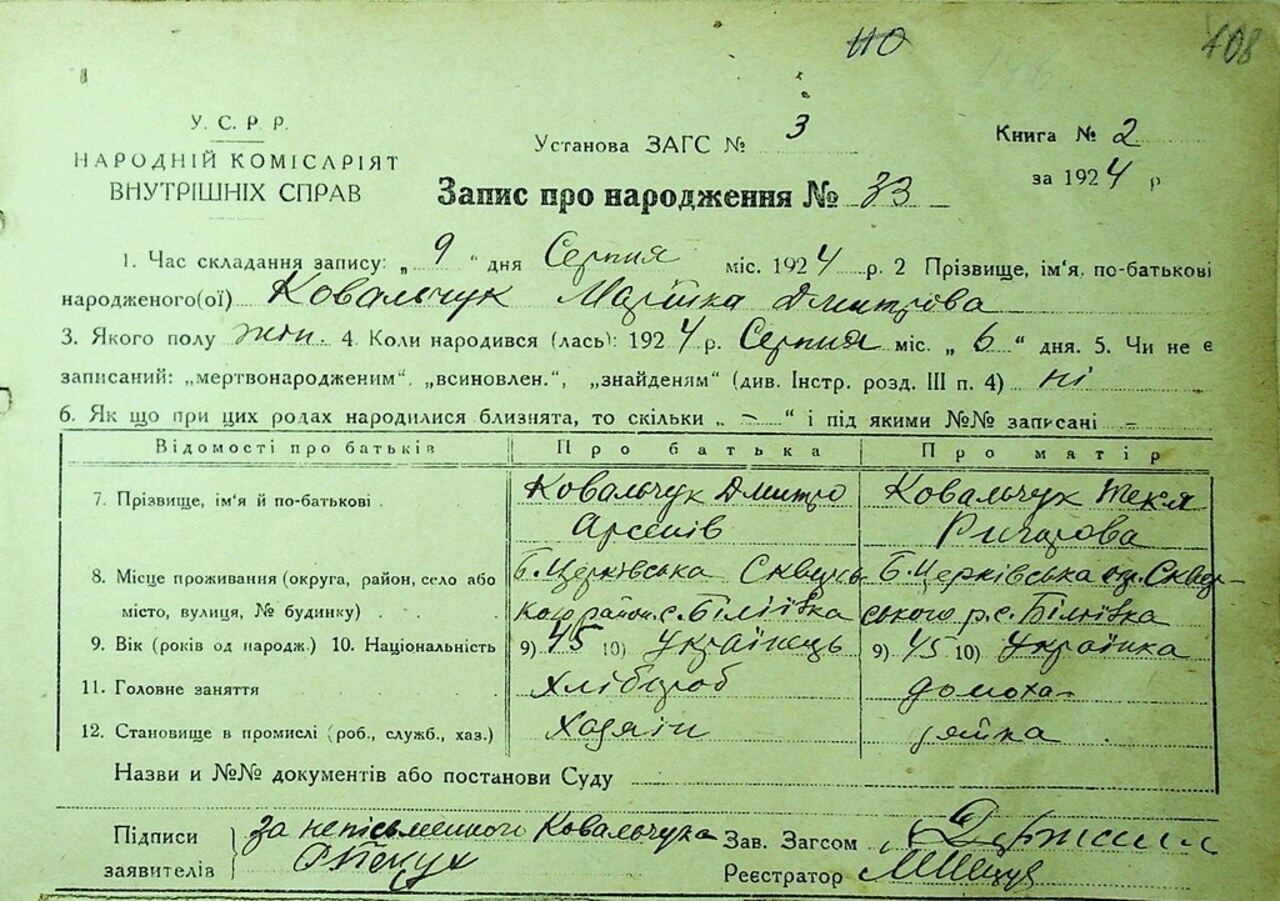 110
108
У. С. Р. Р.
НАРОДНІЙ КОМІСАРІЯТ
ВНУТРІШНІХ СПРАВ
Установа ЗАГС № 3
Книга № 2
за 1924 р
Запис про народження № 33
1. Час складання запису: „ 9 “ дня Серпня міс. 1924 р. 2 Прізвище, ім'я, по-батькові
народженого(ої) Ковальчук Марійка Дмитрова
3. Якого полу жін. 4. Коли народився (лась): 1924 р. Серпня міс. „ 6 “ дня. 5. Чи не є
записаний: „мертвонародженим“, „всиновлен.“, „знайденям“ (див. Інстр. розд. III п. 4) ні
6. Як що при цих родах народилися близнята, то скільки „ – “ і під якими №№ записані –
Відомості про батьків Про батька Про матір
7. Прізвище, ім'я й по-батькові . Ковальчук Дмитро Ковальчук Текля
Арсенів
8. Місце проживання (округа, район, село або Б. Церківська Сквирсь Б. Церківська окр. Сквир-
місто, вулиця, № будинку) . . кого район. с. Біліївка ського р. с. Біліївка
9. Вік (років од народж.) 10. Національність 9) 45 10) Українець 9) 45 10) Українка
11. Головне заняття Хлібороб домоха-
12. Становище в промислі (роб., служб., хаз.) Хазяїн зяйка
Назви и №№ документів або постанови Суду
Підписи за неписьменного Ковальчука Зав. Загсом
заявителів Реєстратор